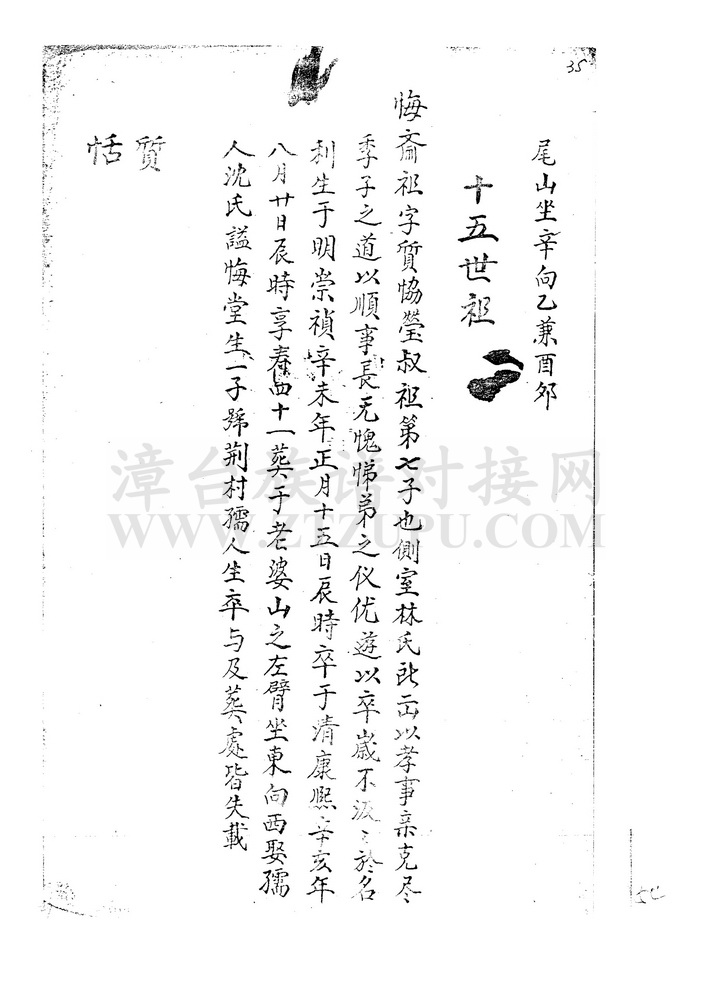 35
尾山坐辛向乙兼酉夘
十五世祖
悔斋祖字質恊瑩叔祖第七子也側室林氏所出以孝事亲克尽
季子之道以順事長无愧悌弟之仪优遊以卒歲不汲〻於名
利生于明崇禎辛未年正月十五日辰時卒于清康熙辛亥年
八月廿日辰時享寿四十一葬于老婆山之左臂坐東向西娶孺
人沈氏謚悔堂生一子號荆村孺人生卒与及葬處皆失載
質
恬
漳台族谱对接网
WWW.ZTZUPU.COM